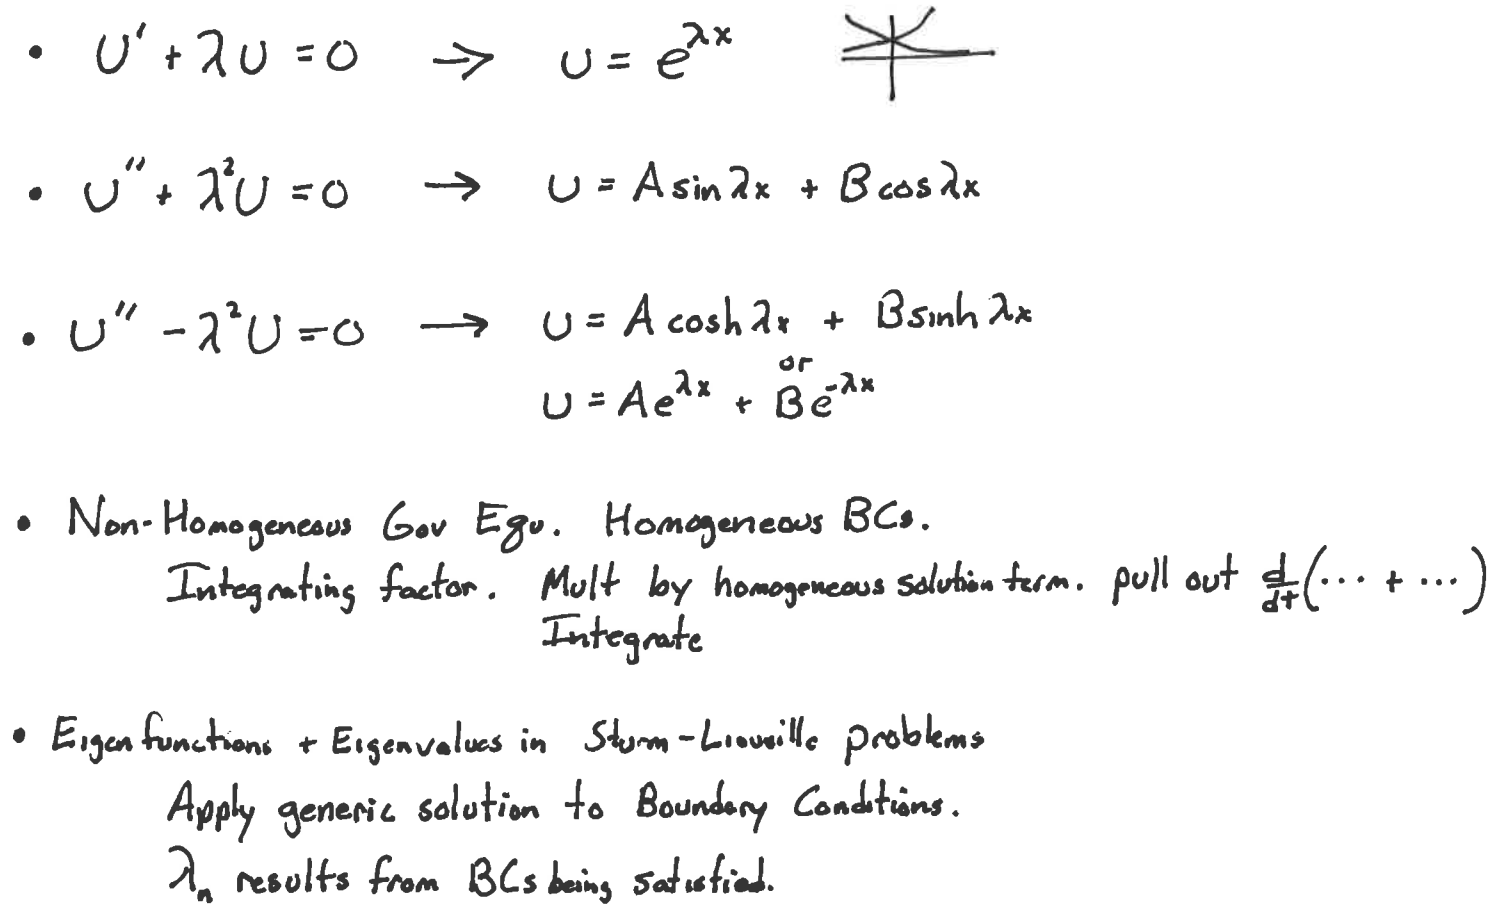 • U' + λU = 0 → U = e^{λx}
• U'' + λ²U = 0 → U = A sin λx + B cos λx
• U'' - λ²U = 0 → U = A cosh λx + B sinh λx
or
U = Ae^{λx} + Be^{-λx}
• Non-Homogeneous Gov Equ. Homogeneous BCs.
Integrating factor. Mult by homogeneous solution term. pull out d/dt(··· + ···)
Integrate
• Eigenfunctions + Eigenvalues in Sturm-Liouville problems
Apply generic solution to Boundary Conditions.
λₙ results from BCs being satisfied.